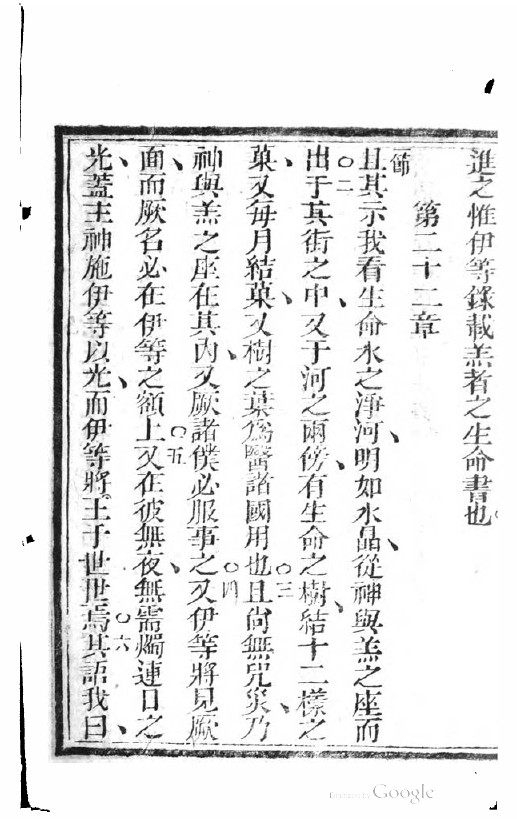 進之惟伊等錄載羔者之生命書也
第二十二章
一節 且其示我看生命水之淨河、明如水晶、從神與羔之座而
出于其街之中、○二又于河之兩傍、有生命之樹、結十二樣之
菓、又每月結菓、又樹之葉爲醫諸國用也○三且尙無咒災、乃
神與羔之座在其內、又厥諸僕必服事之○四又伊等將見厥
面、而厥名必在伊等之額上○五又在彼無夜、無需燭連日之
光、蓋主神施伊等以光、而伊等將王于世世焉○六其語我曰、
Digitized by Google